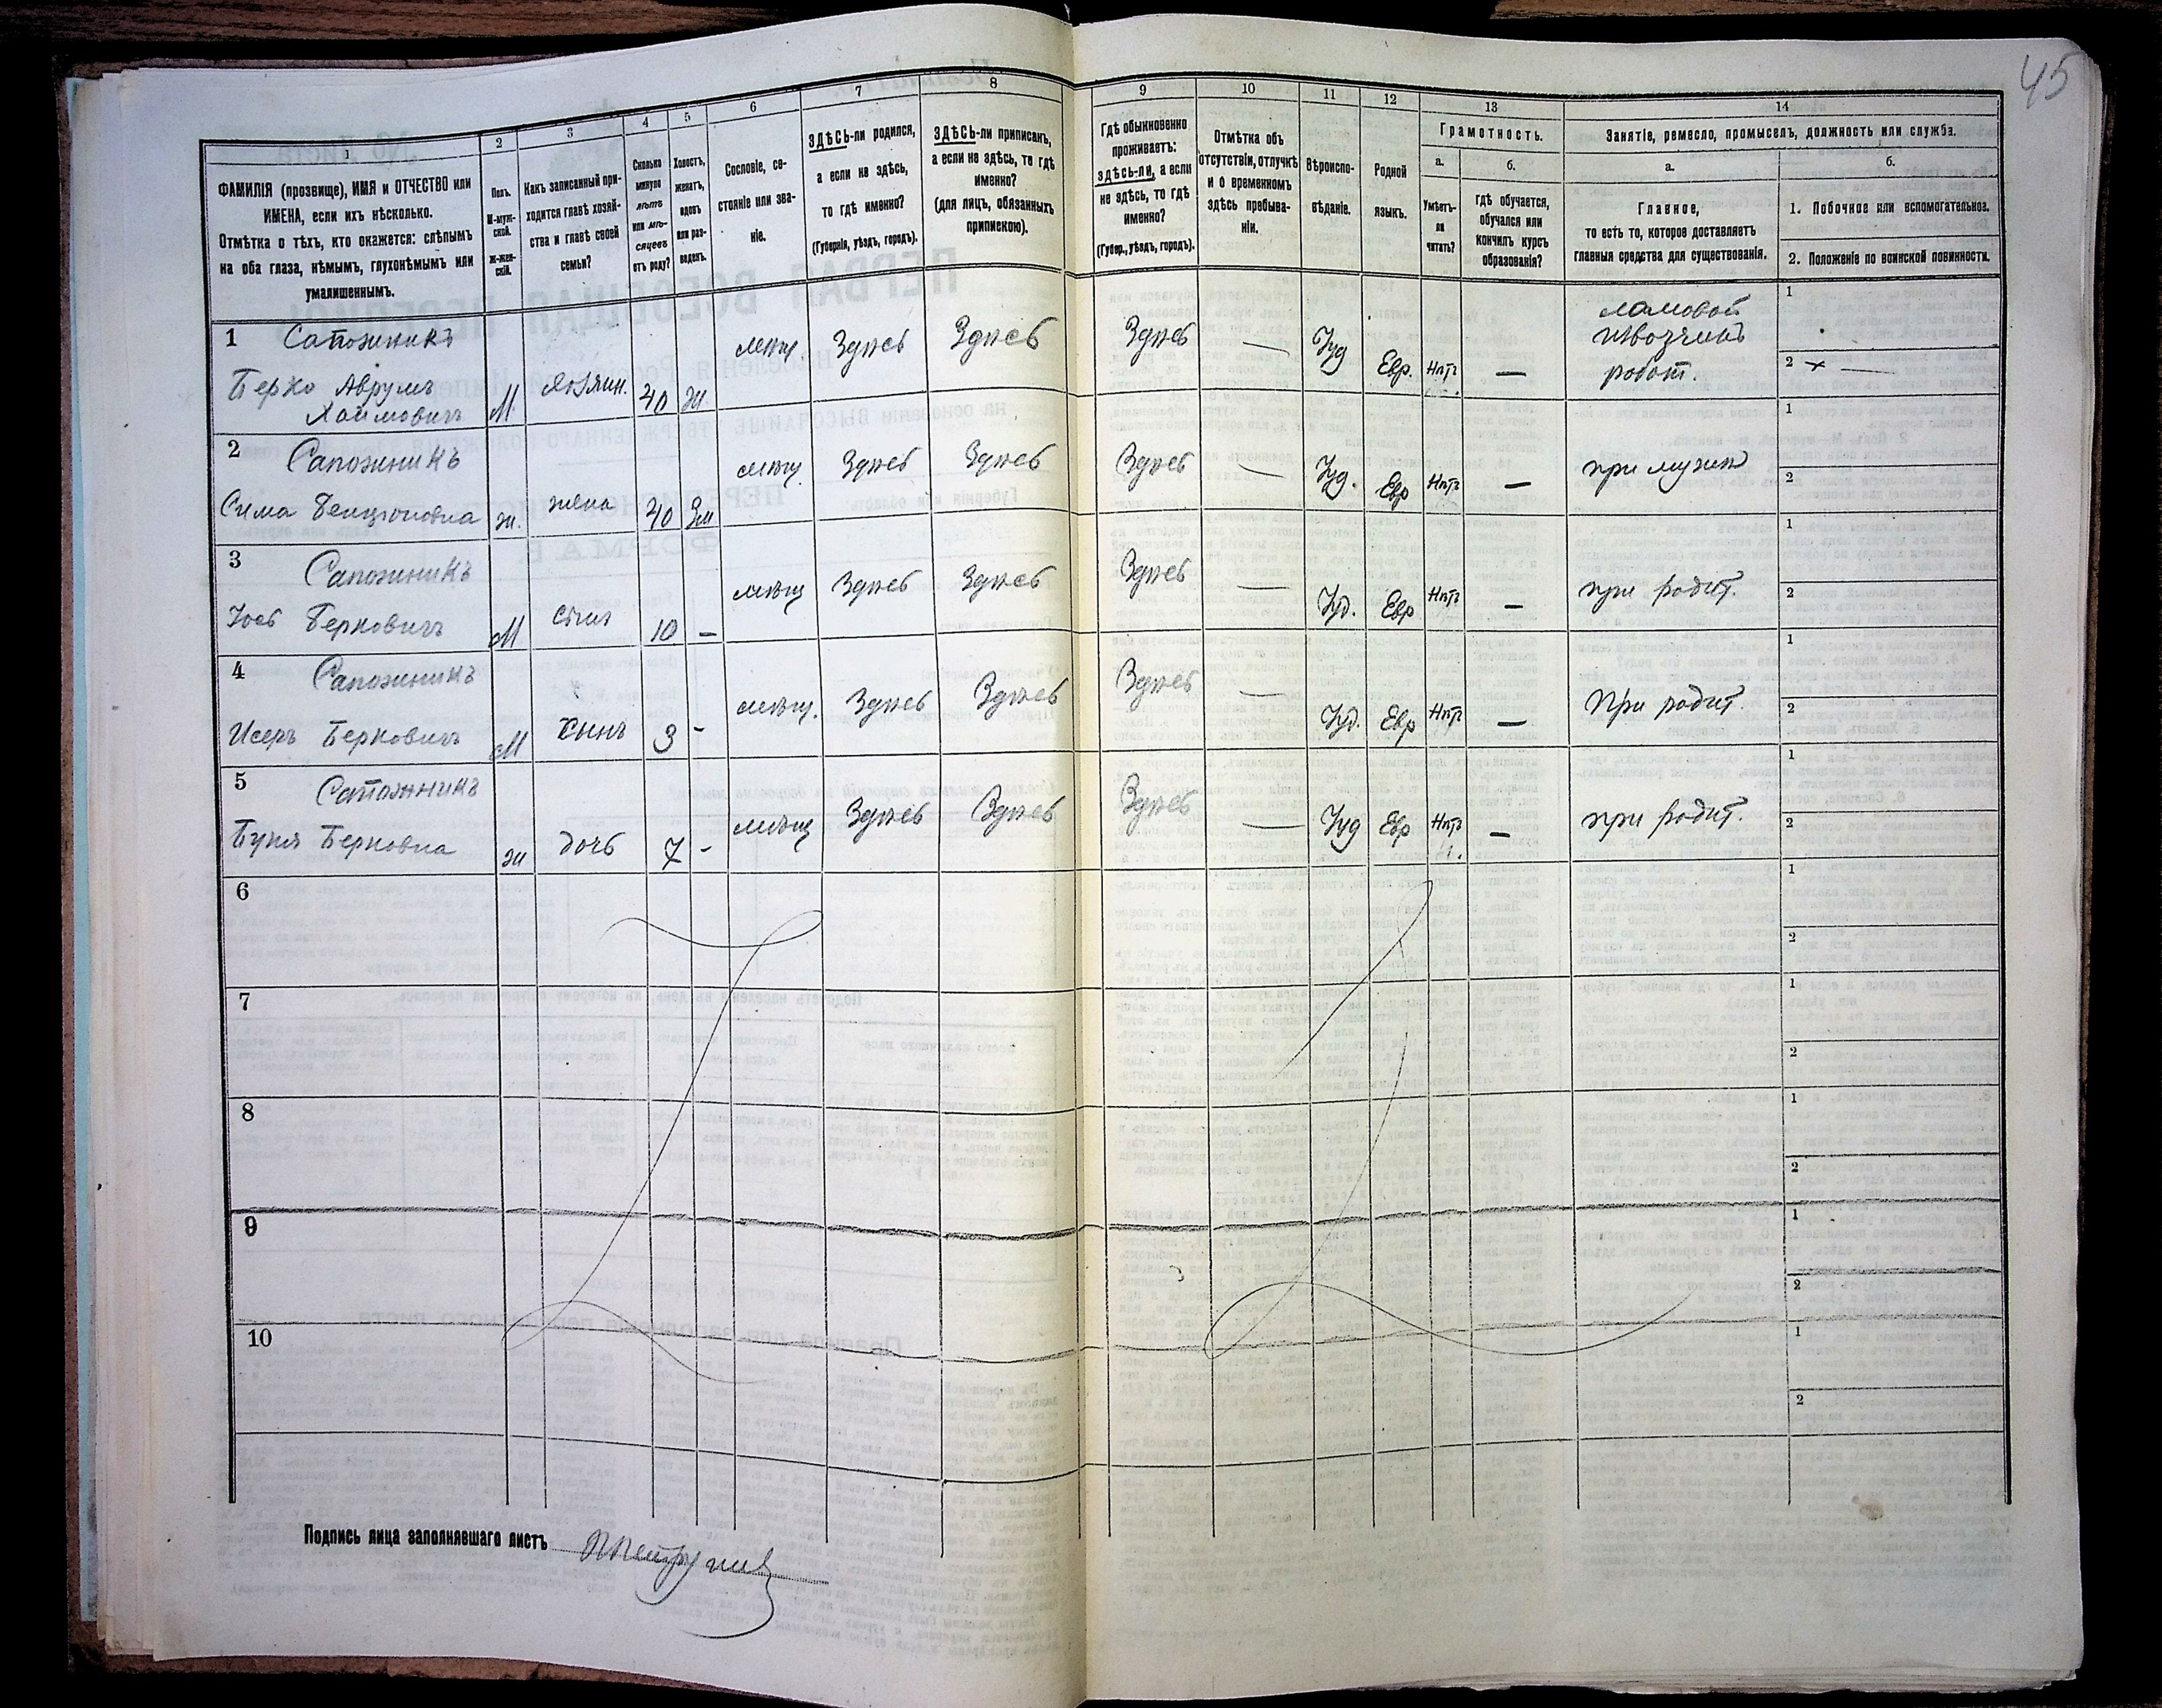 45
1
2
3
4
5
6
7
8
9
10
11
12
13
14
ФАМИЛІЯ (прозвище), ИМЯ и ОТЧЕСТВО или
ИМЕНА, если ихъ нѣсколько.
Отмѣтка о тѣхъ, кто окажется: слѣпымъ
на оба глаза, нѣмымъ, глухонѣмымъ или
умалишеннымъ.
Полъ.
М-муж-
ской.
Ж-жен-
скій.
Какъ записанный при-
ходится главѣ хозяй-
ства и главѣ своей
семьи?
Сколько
минуло
лѣтъ
или мѣ-
сяцевъ
отъ роду?
Холостъ,
женатъ,
вдовъ
или раз-
веденъ.
Сословіе, со-
стояніе или зва-
ніе.
ЗДѢСЬ-ли родился,
а если не здѣсь,
то гдѣ именно?
(Губернія, уѣздъ, городъ).
ЗДѢСЬ-ли приписанъ,
а если не здѣсь, то гдѣ
именно?
(для лицъ, обязанныхъ
припискою).
Гдѣ обыкновенно
проживаетъ:
здѣсь-ли, а если
не здѣсь, то гдѣ
именно?
(Губер., уѣздъ, городъ).
Отмѣтка объ
отсутствіи, отлучкѣ
и о временномъ
здѣсь пребыва-
ніи.
Вѣроиспо-
вѣданіе.
Родной
языкъ.
Грамотность.
а.
Умѣетъ-
ли
читать?
б.
гдѣ обучается,
обучался или
кончилъ курсъ
образованія?
Занятіе, ремесло, промыселъ, должность или служба.
а.
Главное,
то есть то, которое доставляетъ
главныя средства для существованія.
б.
1. Побочное или вспомогательное.
2. Положеніе по воинской повинности.
1 Сапожникъ
Берко Аврумъ
Хаимовичъ
М хозяин. 40 ж мѣщ. Здѣсь Здѣсь Здѣсь — Іуд Евр. Нѣтъ —
ломовой
извозчикъ
работ.
1
2 × —
2 Сапожникъ
Сима Бенціоновна ж. жена 40 Зм мѣщ. Здѣсь Здѣсь Здѣсь — Іуд. Евр Нѣтъ — при мужѣ
1
2
3 Сапожникъ
Берковичъ М сынъ 10 — мѣщ Здѣсь Здѣсь Здѣсь — Іуд. Евр Нѣтъ — при родит.
1
2
4 Сапожникъ
Исеръ Берковичъ М сынъ 3 - мѣщ. Здѣсь Здѣсь Здѣсь — Іуд. Евр Нѣтъ — При родит.
1
2
5 Сапожникъ
Буня Берковна ж дочь 7 - мѣщ Здѣсь Здѣсь Здѣсь — Іуд Евр Нѣтъ — при родит.
1
2
6
1
2
7
1
2
8
1
2
9
1
2
10
1
2
Подпись лица заполнявшаго листъ